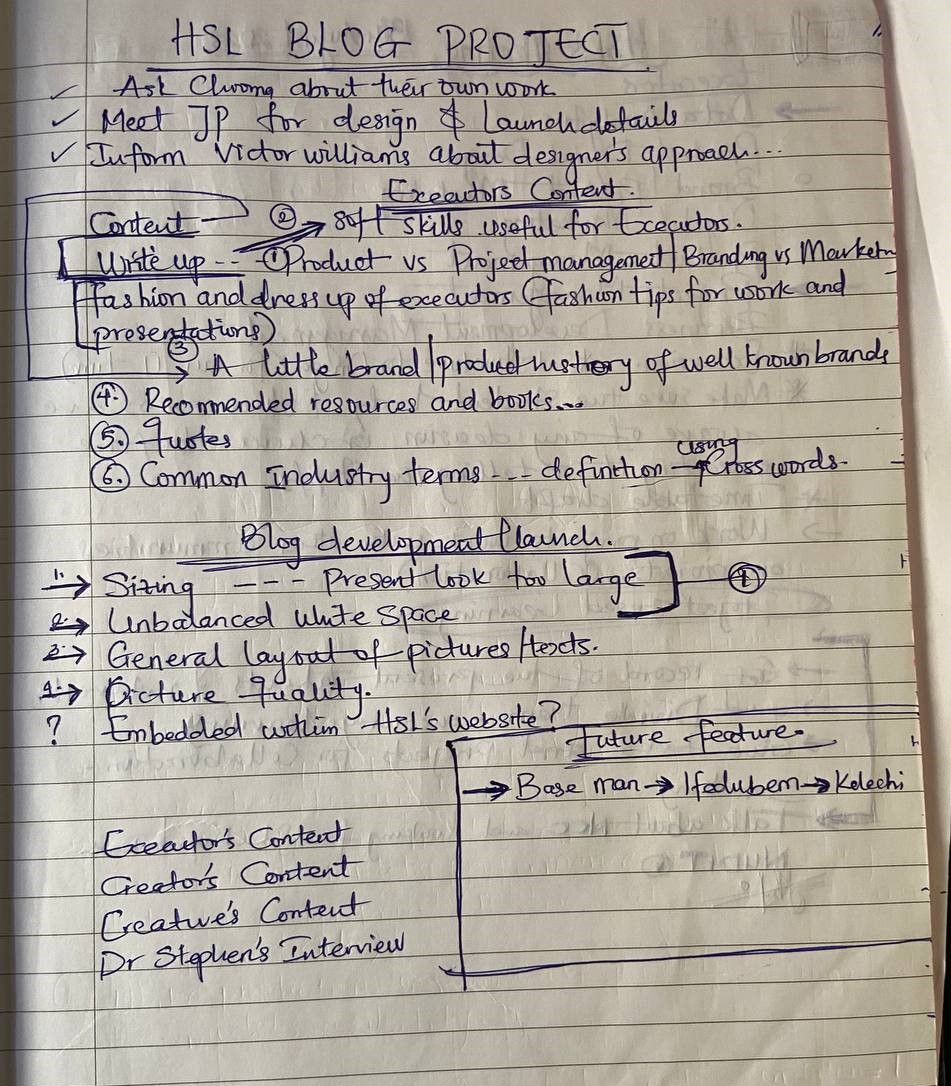 HSL BLOG PROJECT
✓ Ask Chioma about their own work
✓ Meet JP for design & Launch details
✓ Inform Victor williams about designer's approach...
Executors Content.
Content ② → soft skills useful for Executors.
Write up -- ① Product vs Project management | Branding vs Market
fashion and dress up of executors (fashion tips for work and
presentations)
③ → A little brand/product history of well known brands
④ Recommended resources and books...
⑤ Quotes
⑥ Common Industry terms --- definition → using Cross words.
Blog development/launch.
1. → Sizing --- Present look too large ④
2. → Unbalanced White Space
3. → General layout of pictures/texts.
4. → Picture Quality.
? Embedded within HSL's website?
Future feature.
→ Base man → Ifedubem → Kelechi
Executor's Content
Creator's Content
Creative's Content
Dr Stephen's Interview